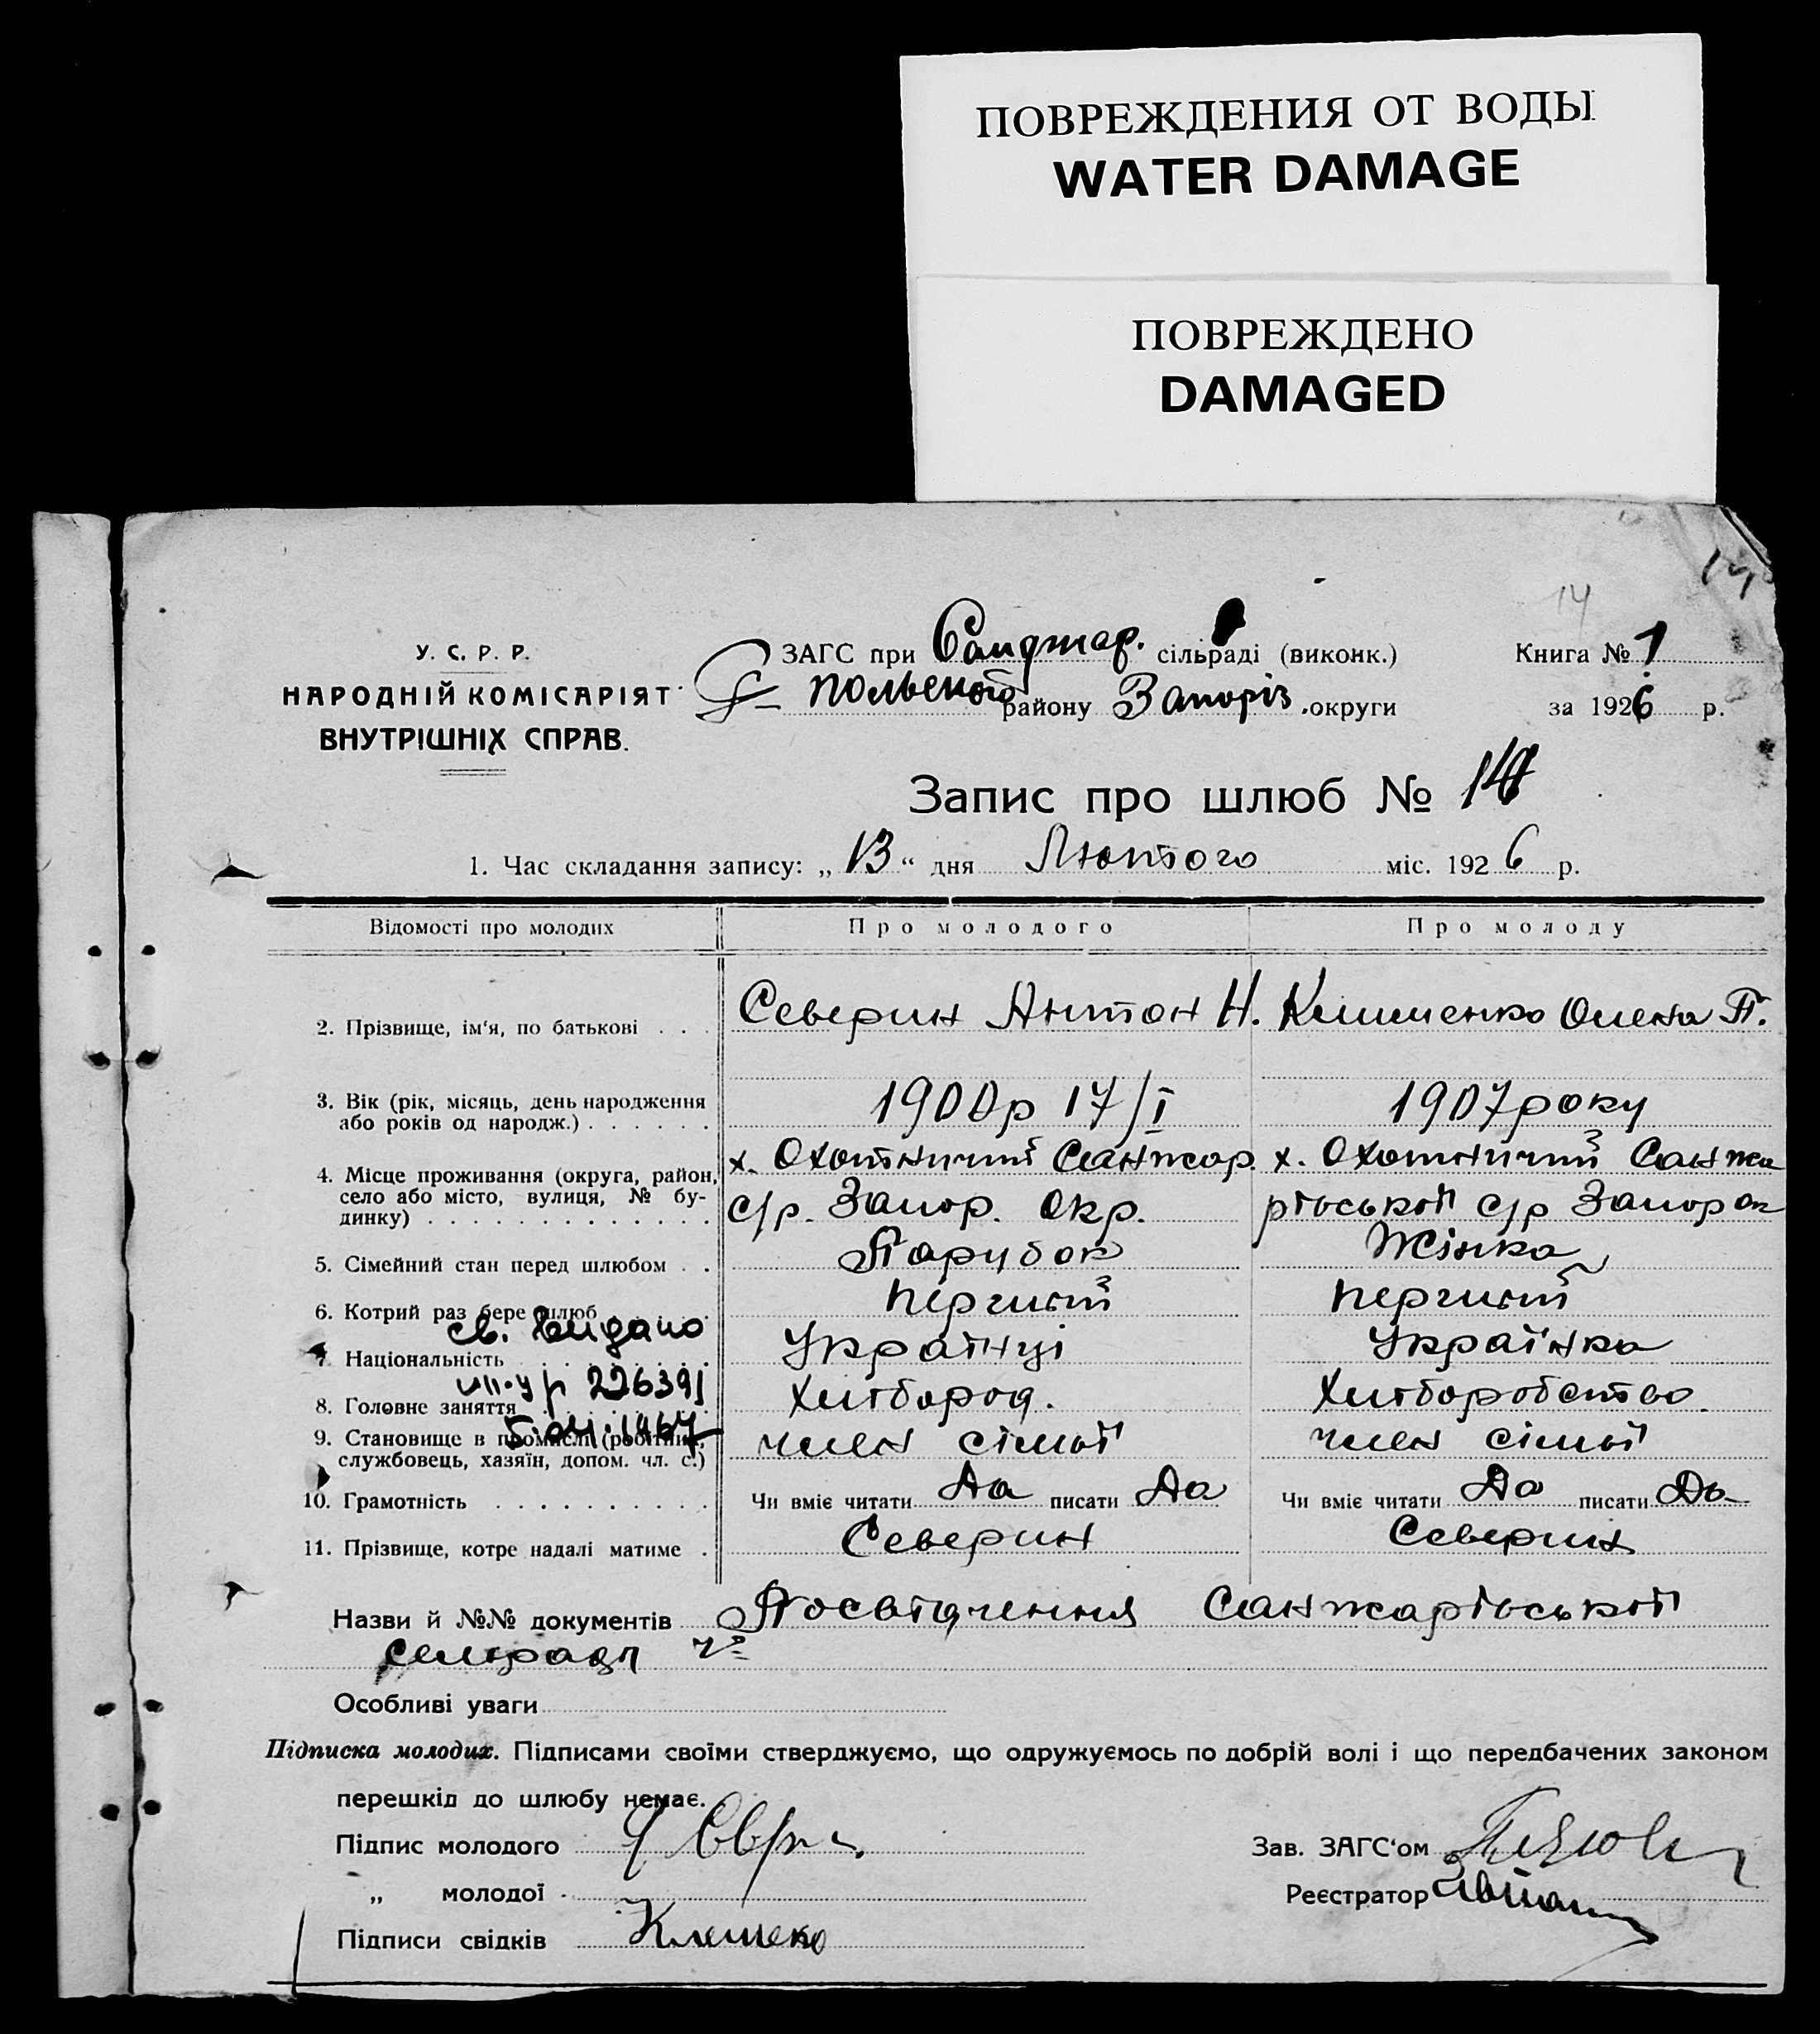 ПОВРЕЖДЕНИЯ ОТ ВОДЫ
WATER DAMAGE
ПОВРЕЖДЕНО
DAMAGED
14
У. С. Р. Р.
НАРОДНІЙ КОМІСАРІЯТ
ВНУТРІШНІХ СПРАВ.
ЗАГС при Санджар. сільраді (виконк.)
польського району Запоріз. округи
Книга № 1
за 1926 р.
Запис про шлюб № 14
1. Час складання запису: „13“ дня Лютого міс. 1926 р.
Відомості про молодих Про молодого Про молоду
2. Прізвище, ім‘я, по батькові . . . Северин Антон Н. Клименко Олена П.
3. Вік (рік, місяць, день народження
або років од народж.) . . . . . . 1900р 17/I 1907 року
4. Місце проживання (округа, район, х. Охотничий Санжар. х. Охотничий Санжа
село або місто, вулиця, № бу- с/р. Запор. Окр. рівської с/р Запор ок
динку) . . . . . . . . . . . . .
5. Сімейний стан перед шлюбом . . Парубок Жінка
6. Котрий раз бере шлюб Перший Перший
св. видано
7 Національність . . . . . . . Українці Українка
р 226391
8. Головне заняття Хлібород. Хліборобство.
5.04.1967
9. Становище в промислі (робітник, член сімьї член сімьї
службовець, хазяїн, допом. чл. с.)
10. Грамотність . . . . . . . . . . . Чи вміє читати Да писати Да Чи вміє читати Да писати Да
11. Прізвище, котре надалі матиме . Северин Северин
Назви й №№ документів Посвідчення Санжарівської
сельради
Особливі уваги
Підписка молодих. Підписами своїми стверджуємо, що одружуємось по добрій волі і що передбачених законом
перешкід до шлюбу немає.
Підпис молодого
Зав. ЗАГС‘ом
„ молодої
Реєстратор
Підписи свідків